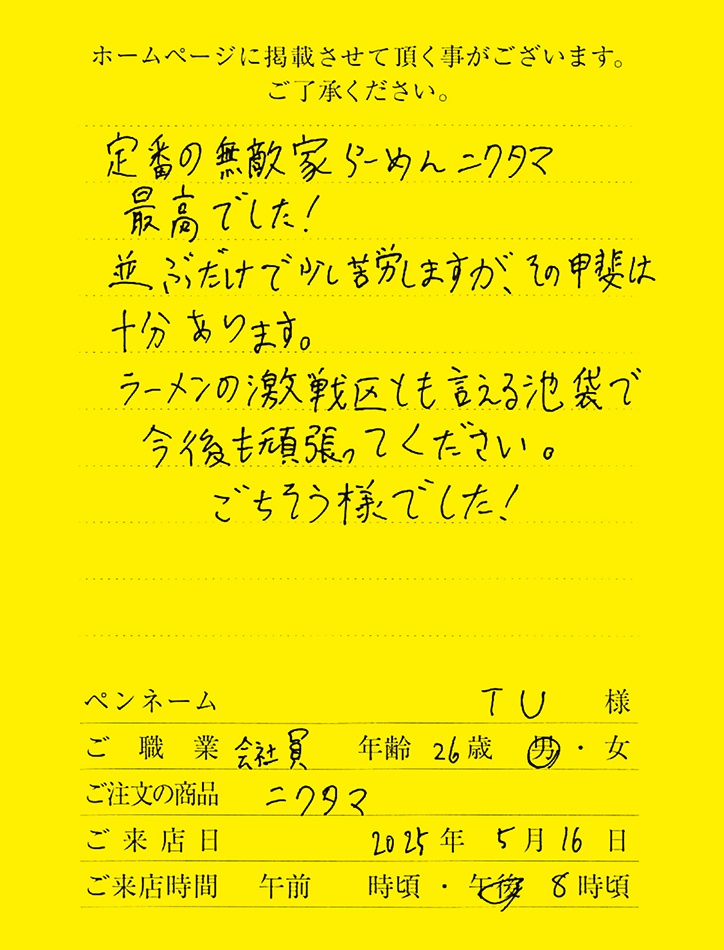 ホームページに掲載させて頂く事がございます。
ご了承ください。
定番の無敵家らーめんニクタマ
最高でした！
並ぶだけで少し苦労しますが、その甲斐は
十分あります。
ラーメンの激戦区とも言える池袋で
今後も頑張ってください。
ごちそう様でした！
ペンネーム TU 様
ご職業 会社員 年齢 26歳 男・女
ご注文の商品 ニクタマ
ご来店日 2025年 5月16日
ご来店時間 午前 時頃・午後 8時頃